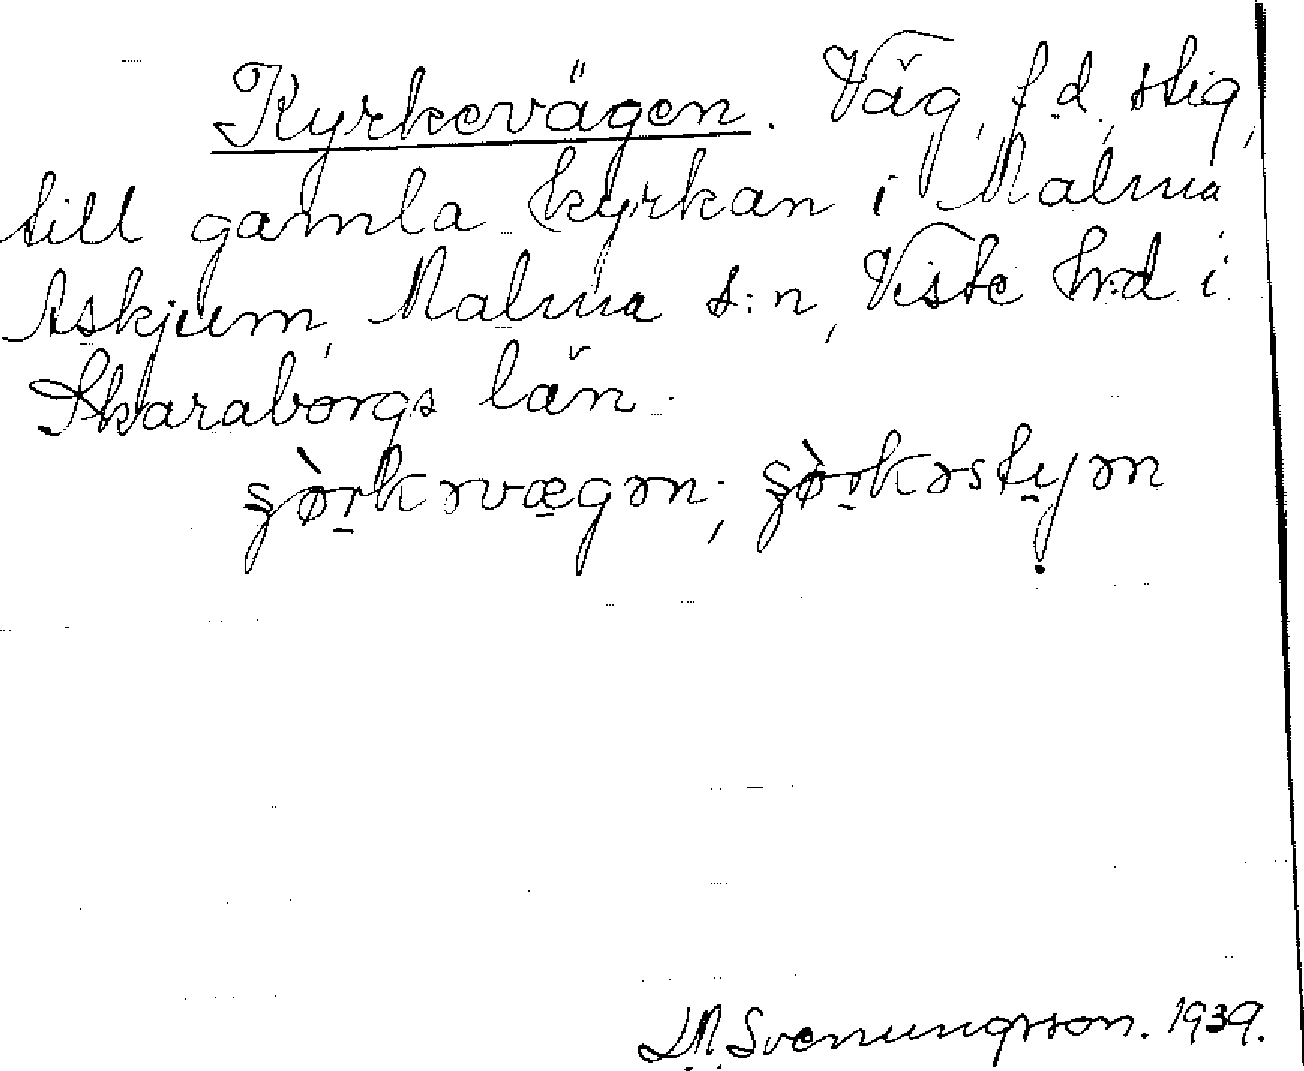 Kyrkevägen. Väg, f.d. stig,
till gamla kyrkan i Malma
Askjum, Malma s:n, Viste hrd i
Skaraborgs län.
ʂø̀rkəvægən; ʂø̀rkəstyən
Svenungsson. 1939.